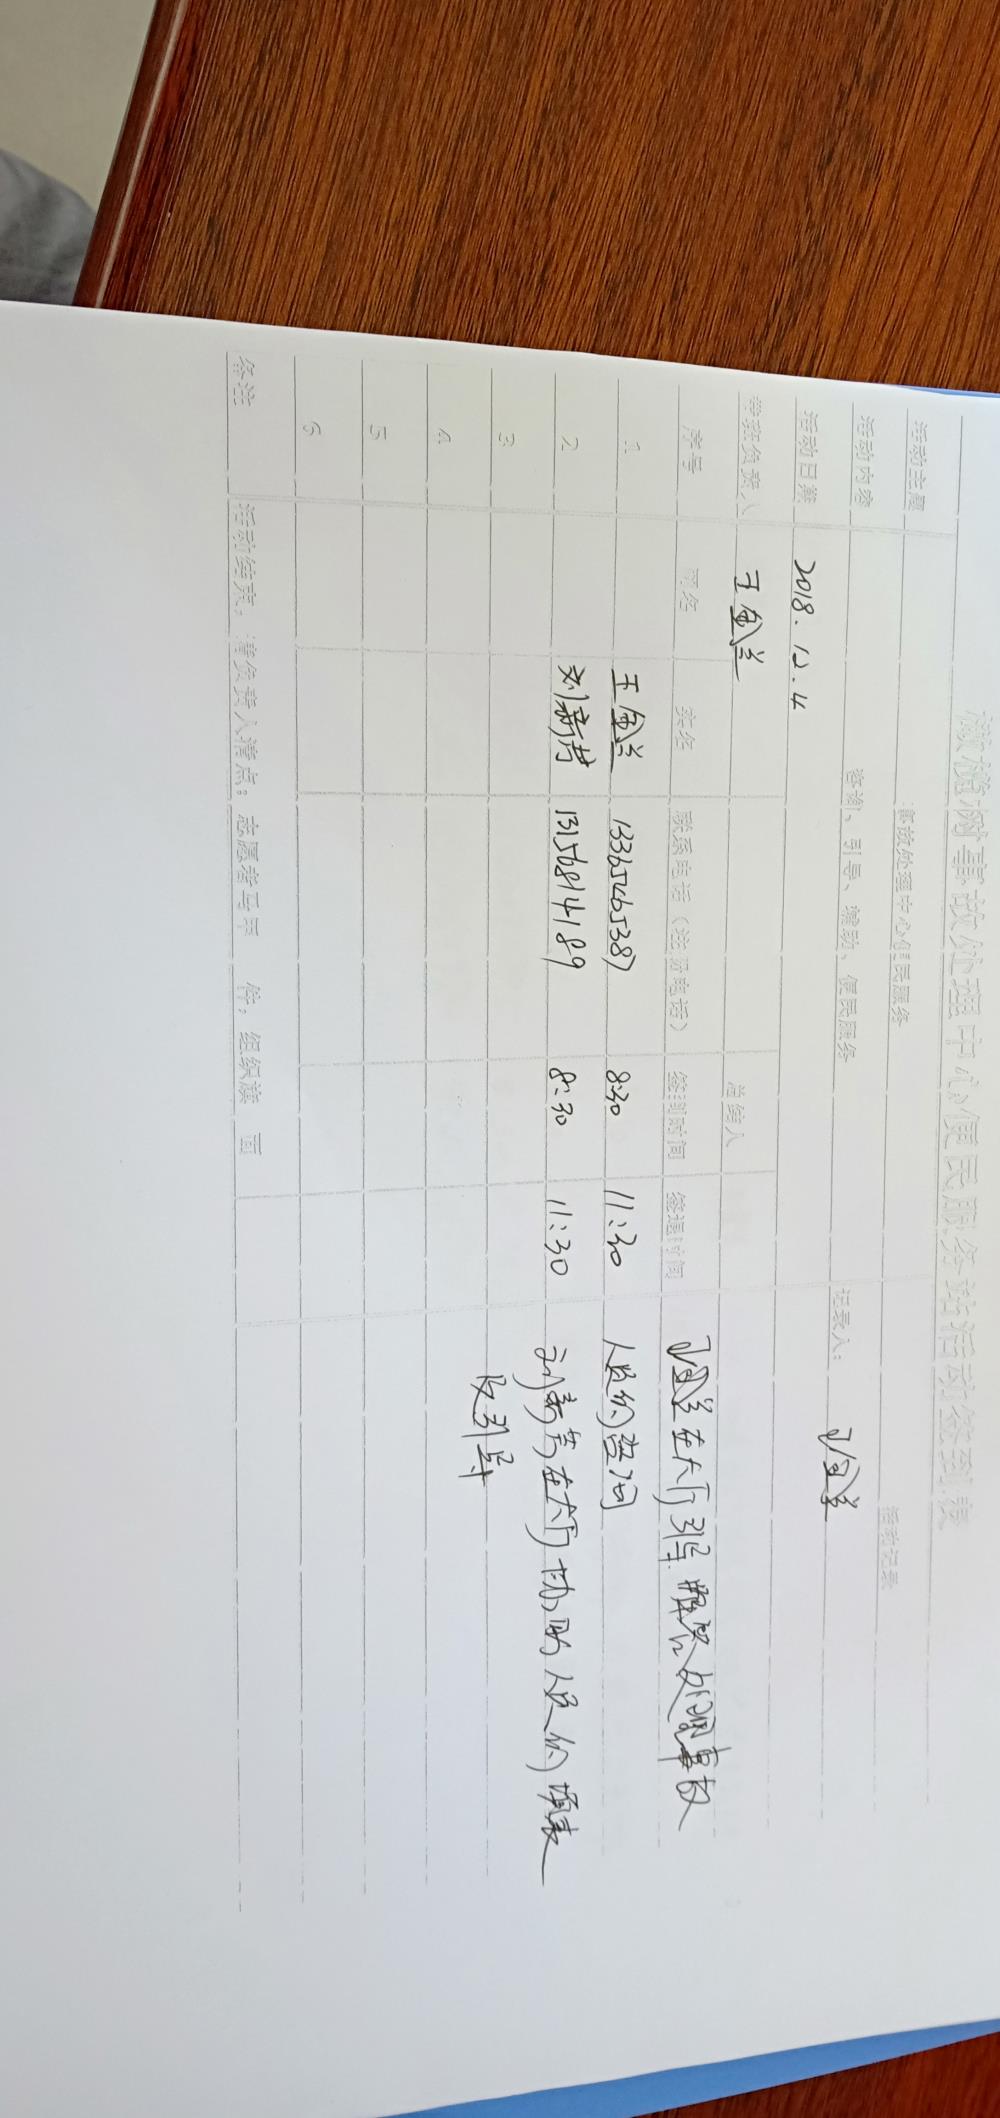 事故处理中心便民服务站活动签到表
活动主题 事故处理中心便民服务 活动记录
活动内容 咨询、引导、辅助、便民服务 记录人：王金兰
活动日期 2018.12.4
带班负责人 王金兰 总结人
序号 网名 实名 联系电话（注册电话） 签到时间 签退时间
王金兰在大厅引导 处理事故
1 王金兰 13365465387 8:30 11:30
人员的咨询
2 刘新芳 13156814189 8:30 11:30
刘新芳在大厅协助人员的填表
及引导
3
4
5
6
备注 活动结束，请负责人清点：志愿者马甲 件，组织旗 面